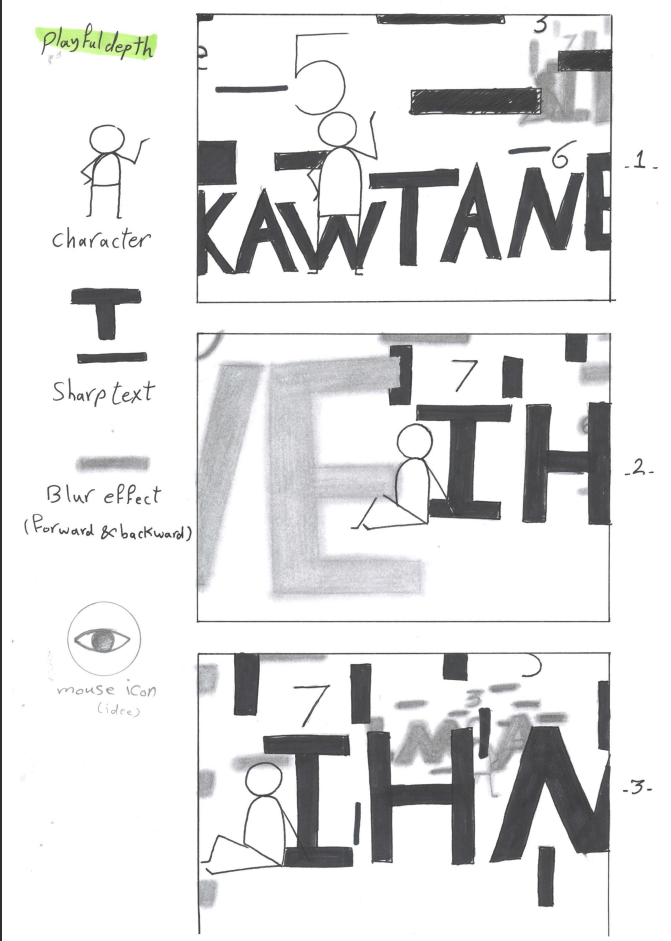 playful depth
character
T
Sharp text
Blur effect
(forward & backward)
mouse icon
(idee)
3
5
7
6
KAWTANE
-1-
7
VE
IH
-2-
3
7
IHN
-3-